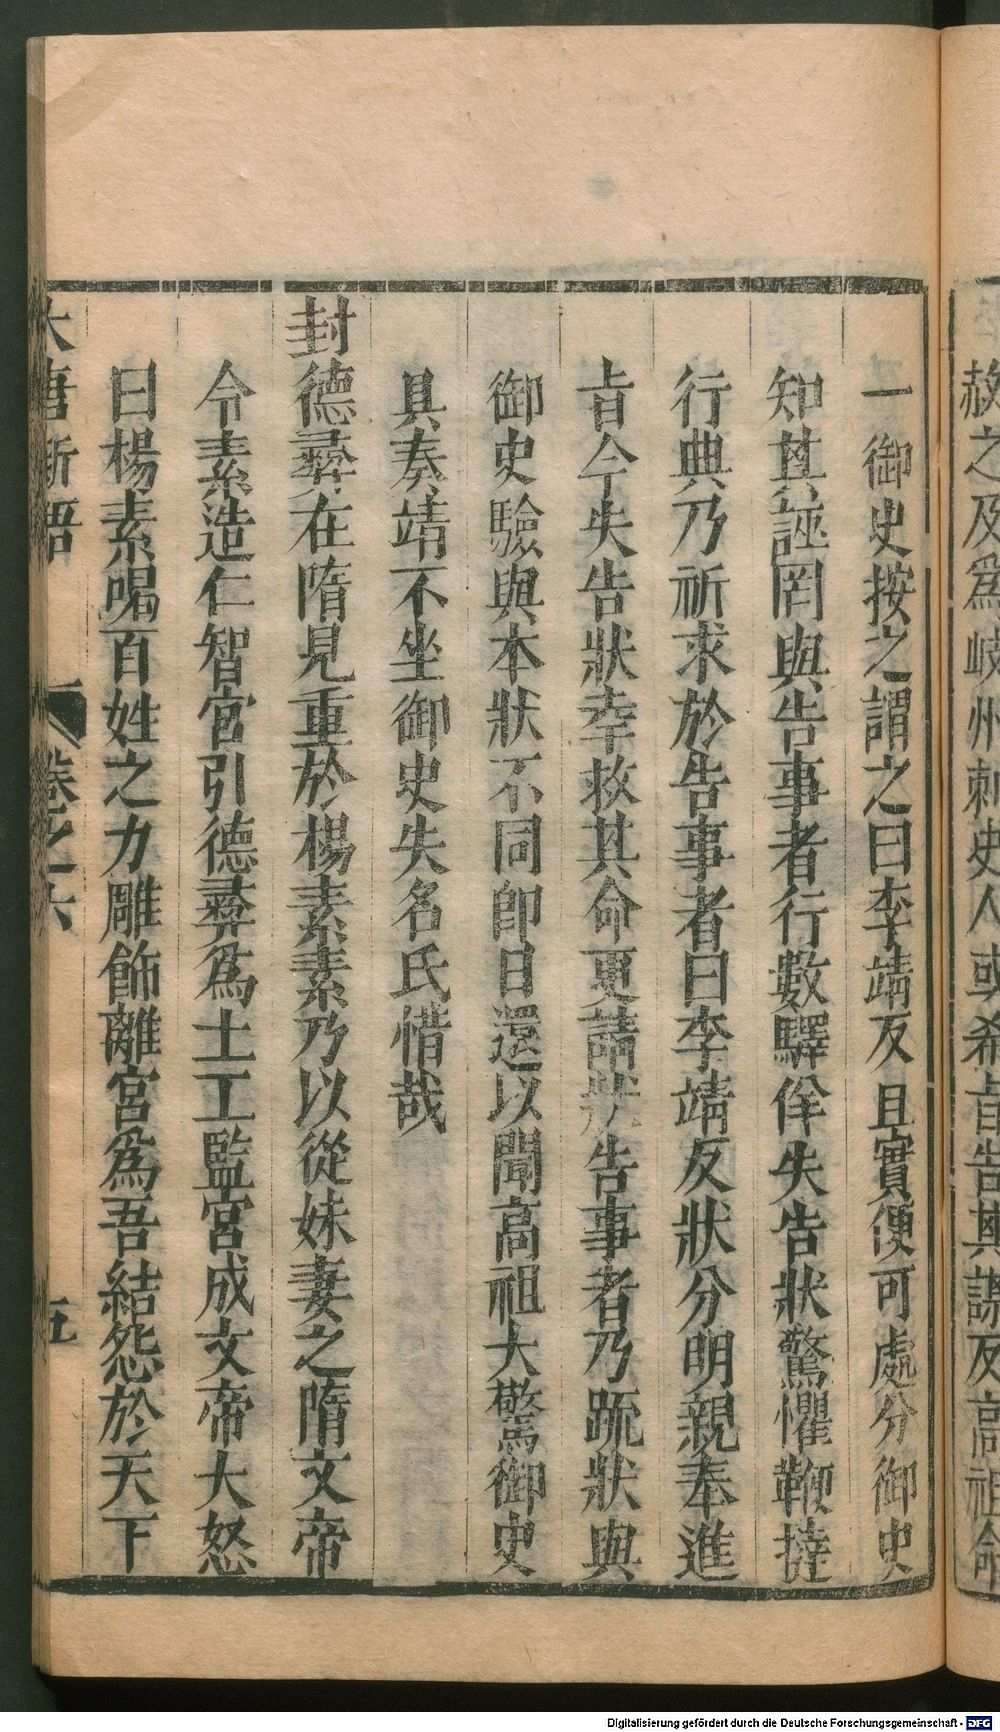 赦之及爲岐州刺史人或希旨告其謀反高祖命
一御史按之謂之曰李靖反且實便可處分御史
知其誣罔與告事者行數驛佯失告狀驚懼鞭撻
行典乃祈求於告事者曰李靖反狀分明親奉進
旨今失告狀幸救其命更請狀告事者乃疏狀與
御史驗與本狀不同卽日還以聞高祖大驚御史
具奏靖不坐御史失名氏惜哉
封德彝在隋見重於楊素素乃以從妹妻之隋文帝
令素造仁智宮引德彝爲土工監宮成文帝大怒
曰楊素竭百姓之力雕飾離宮爲吾結怨於天下
大唐新語 卷之六 五
Digitalisierung gefördert durch die Deutsche Forschungsgemeinschaft - DFG